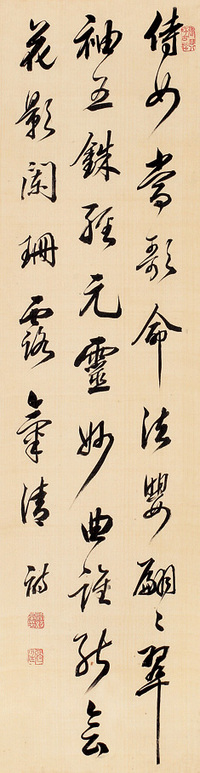 侍女當歌命法嬰翩〻翠
袖五銖輕元靈妙曲誰能會
花影闌珊露氣清